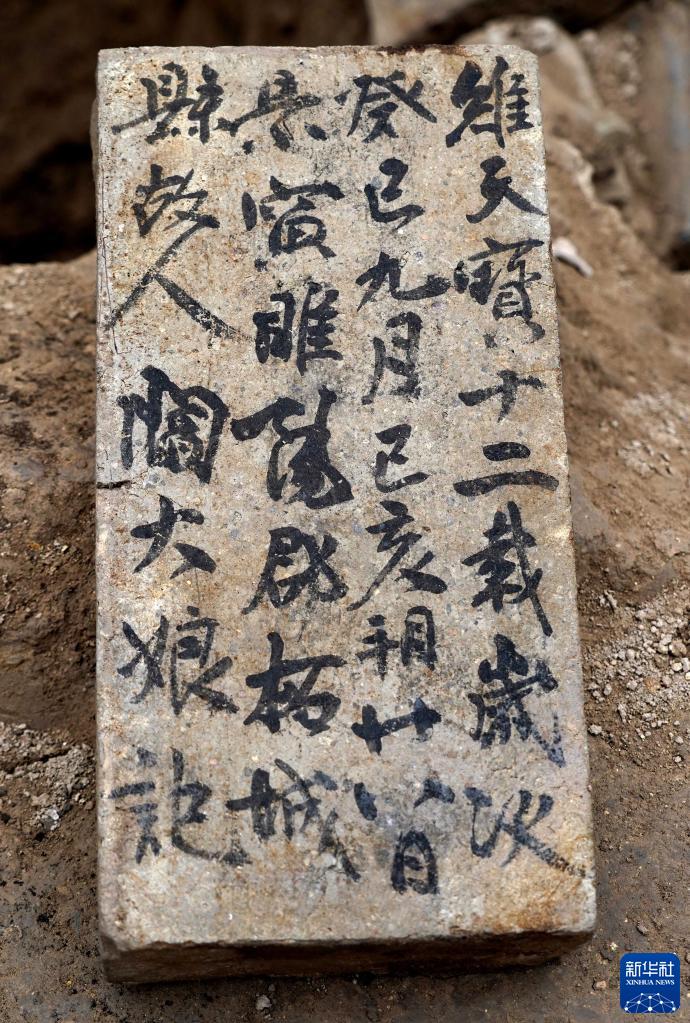 維天寶十二載歲次
癸巳九月己亥朔廿八日
丙寅睢陽郡柘城
縣故人閻大娘記
新华社
XINHUA NEWS